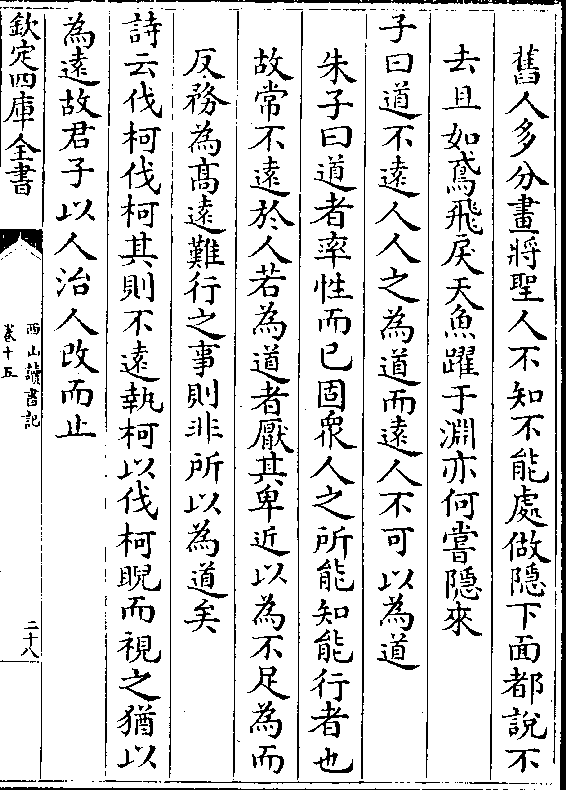 舊人多分畫將聖人不知不能處做隱下面都說不
去且如鳶飛戾天魚躍于淵亦何嘗隱來
子曰道不遠人人之為道而遠人不可以為道
朱子曰道者率性而已固衆人之所能知能行者也
故常不遠於人若為道者厭其卑近以為不足為而
反務為髙遠難行之事則非所以為道矣
詩云伐柯伐柯其則不遠執柯以伐柯睨而視之猶以
為遠故君子以人治人改而止
欽定四庫全書
西山讀書記
卷十五
二十八